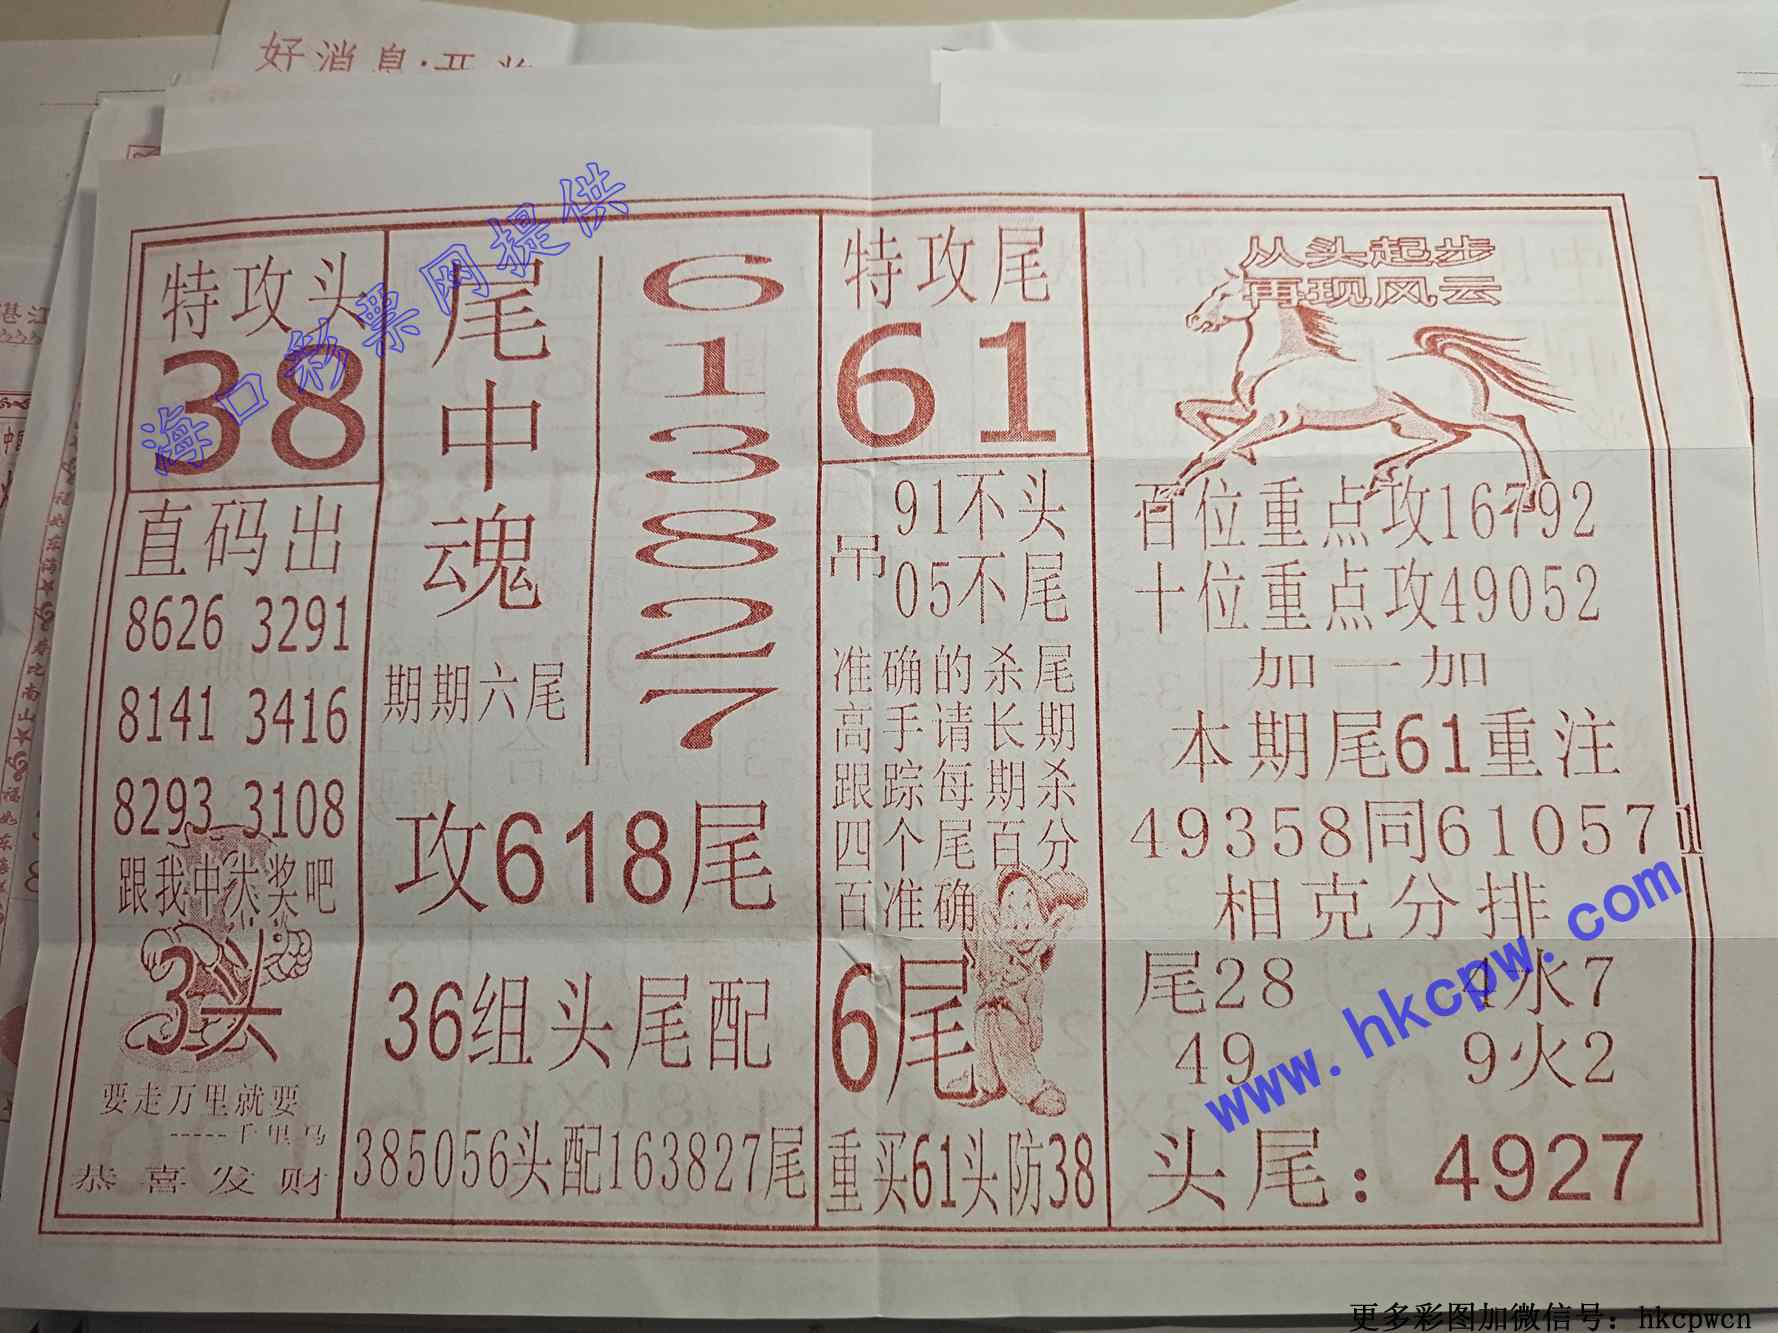 好消息:开奖
特攻头
38
直码出
8626 3291
8141 3416
8293 3108
跟我中大奖吧
3头
要走万里就要
-----千里马
恭喜发财
尾中魂
期期六尾
6
1
3
8
2
7
攻618尾
36组头尾配
385056头配163827尾
特攻尾
61
吊
91不头
05不尾
准确的杀尾
高手请长期
跟踪每期杀
四个尾百分
百准确
6尾
重买61头防38
从头起步
再现风云
百位重点攻16792
十位重点攻49052
加一加
本期尾61重注
49358同610571
相克分排
尾28 4水7
49 9火2
头尾：4927
海口彩票网提供
www.hkcpw.com
更多彩图加微信号：hkcpwcn